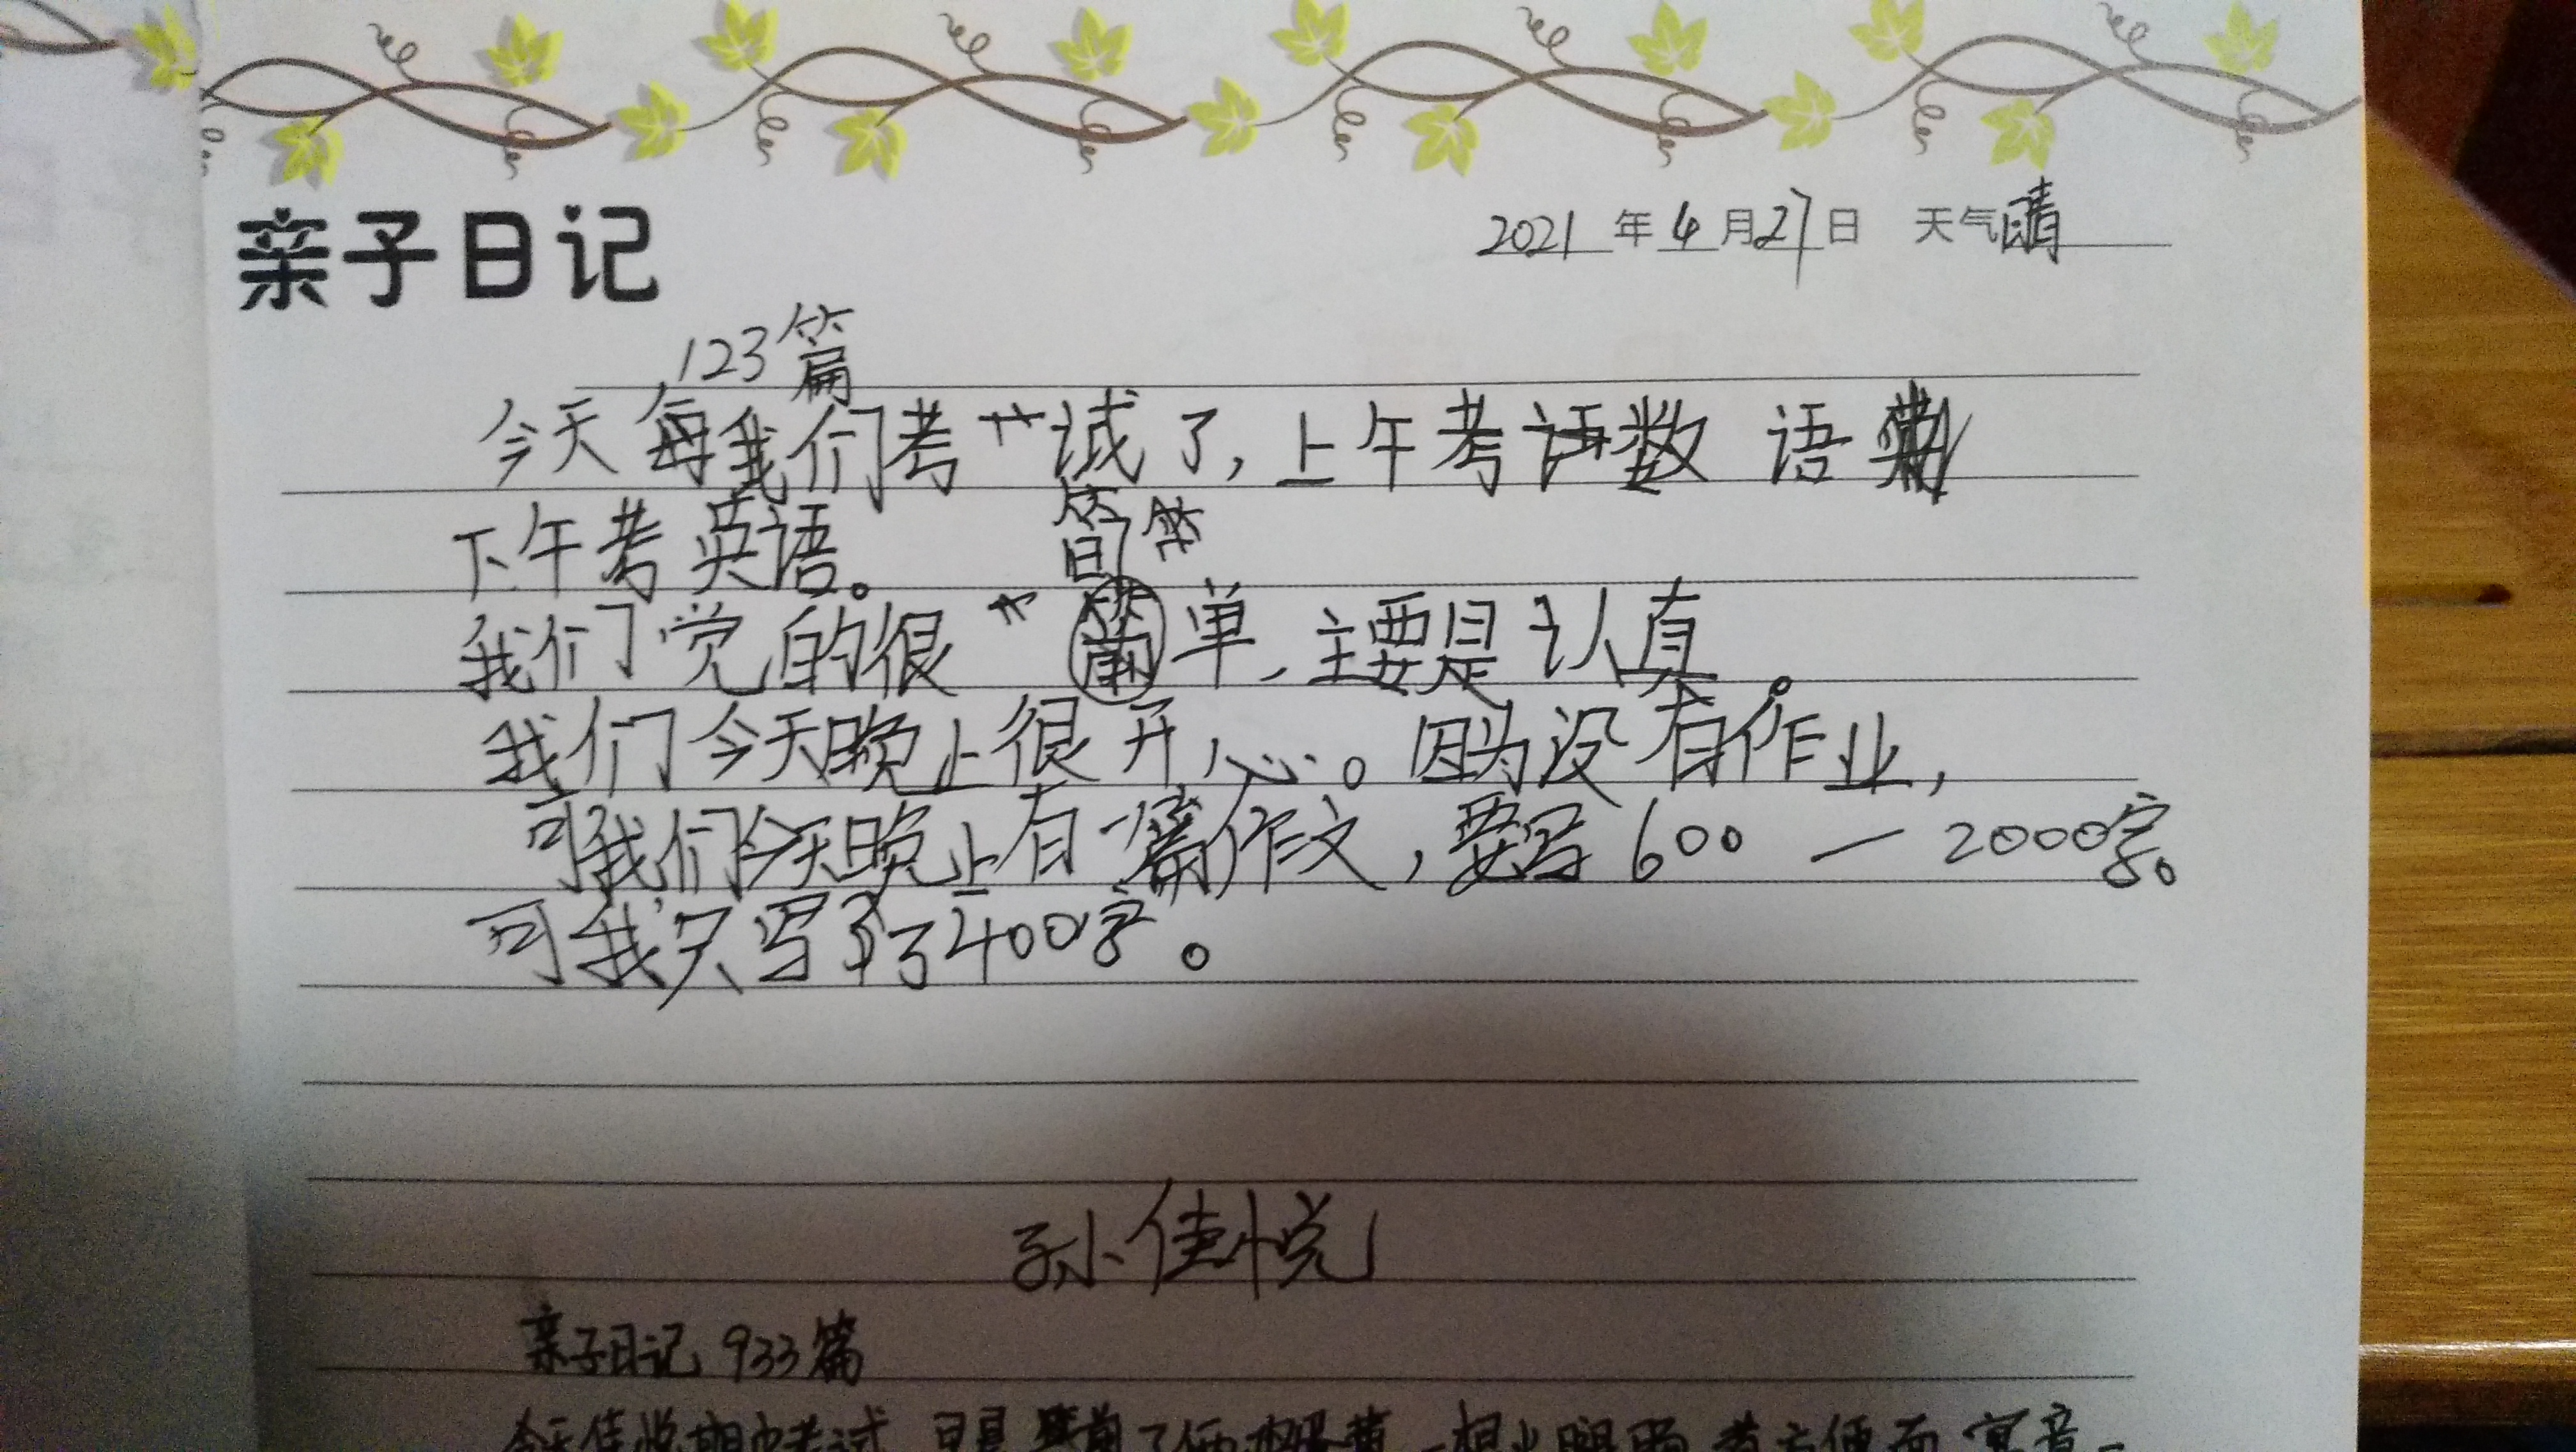 亲子日记
2021年4月27日 天气晴
123篇
今天每我们考试了,上午考语数 语
下午考英语。
简
我们觉的很简单,主要是认真。
我们今天晚上很开心。因为没有作业,
可我们今天晚上有一篇作文,要写600一2000字。
可我只写了400字。
孙佳悦
亲子日记 933篇
今天佳悦期中考试